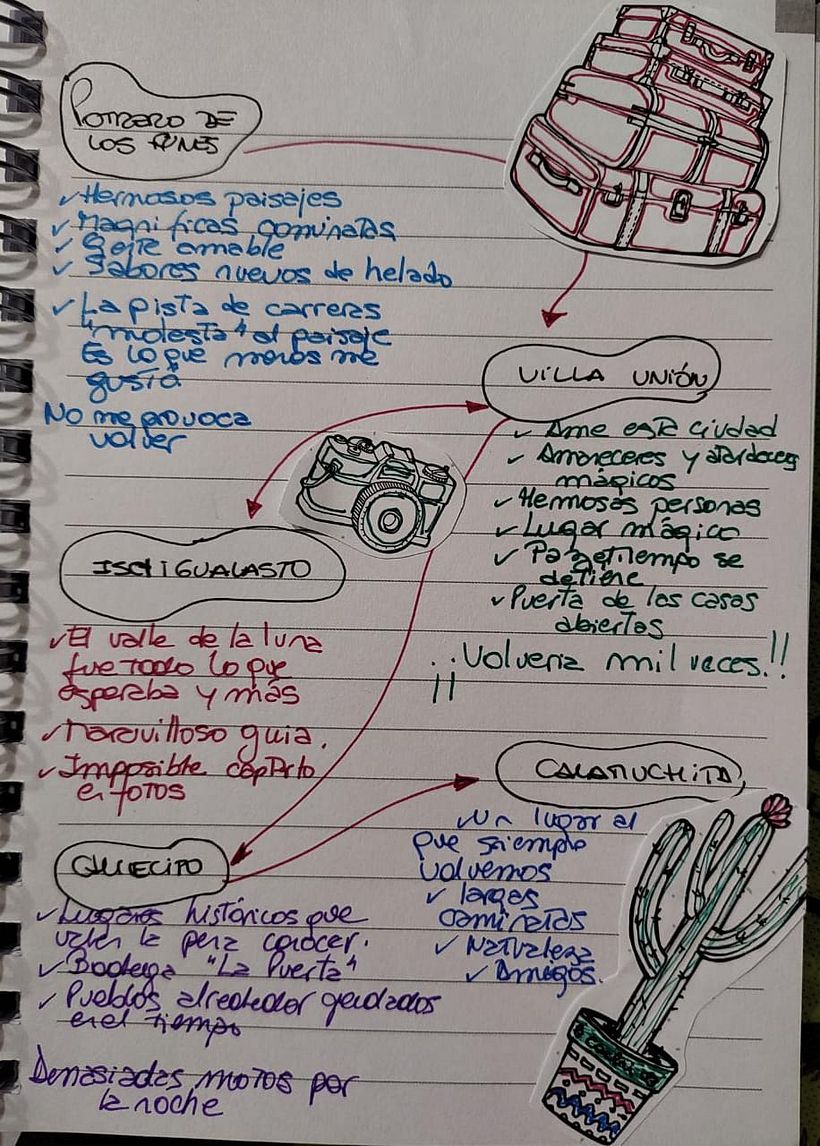 Potrero DE
LOS FUNES
✓ Hermosos paisajes
✓ Magnificas caminatas
✓ Gente amable
✓ Sabores nuevos de helado
✓ La pista de carreras
"molesta" al paisaje
Es lo que menos me
gustó
No me provoca
volver
VILLA UNIÓN
✓ Ame este ciudad
✓ Amaneceres y atardeceres
mágicos
✓ Hermosas personas
✓ Lugar mágico
✓ Paz, el tiempo se
detiene
✓ Puerta de las casas
abiertas
¡¡Volvería mil veces.!!
ISCHIGUALASTO
✓ El valle de la luna
fue todo lo que
esperaba y más
✓ Maravilloso guia.
✓ Imposible captarlo
en fotos
CHILECITO
✓ Lugares históricos que
valen la pena conocer.
✓ Bodega "La Puerta"
✓ Pueblos alrededor quedados
en el tiempo
Demasiadas motos por
la noche
CALAMUCHITA
✓ Un lugar al
que siempre
volvemos
✓ largas
caminatas
✓ Naturaleza
✓ Amigos.